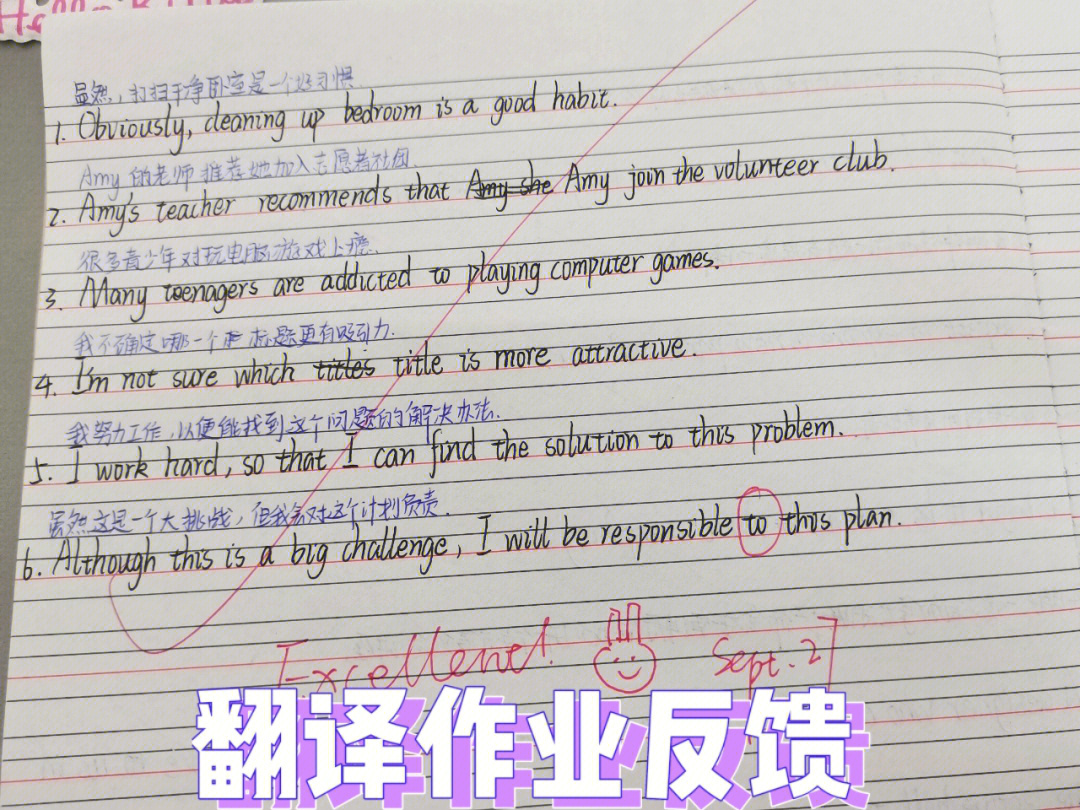 虽然，打扫干净卧室是一个好习惯.
1. Obviously, cleaning up bedroom is a good habit.
Amy的老师推荐她加入志愿者社团.
2. Amy's teacher recommends that Amy she Amy join the volunteer club.
很多青少年对玩电脑游戏上瘾.
3. Many teenagers are addicted to playing computer games.
我不确定哪一个标题更有吸引力.
4. I'm not sure which titles title is more attractive.
我努力工作,以便能找到这个问题的解决办法.
5. I work hard, so that I can find the solution to this problem.
虽然这是一个大挑战, 但我会对这个计划负责.
6. Although this is a big challenge, I will be responsible to this plan.
Excellent! Sept. 2
翻译作业反馈